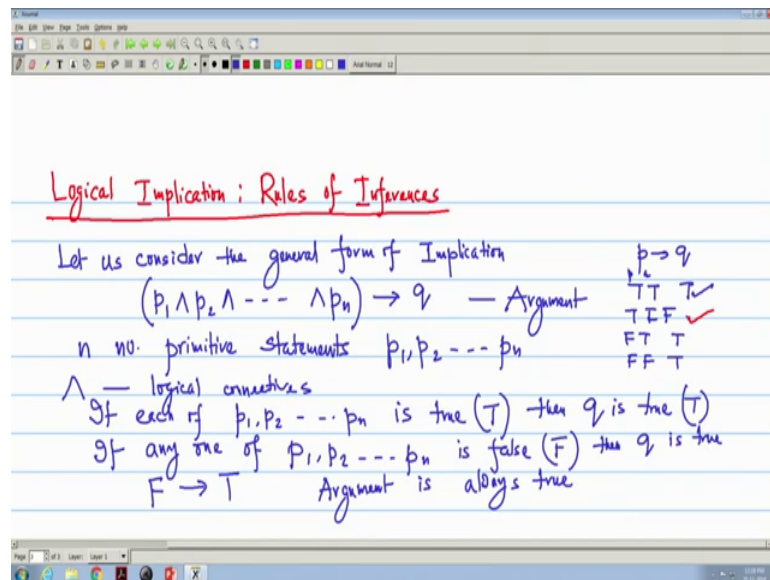 Journal
File Edit View Page Tools Options Help
Arial Normal 12
Logical Implication : Rules of Inferences
Let us consider the general form of Implication
(p₁ ∧ p₂ ∧ - - - ∧ pₙ) → q — Argument
n no. primitive statements p₁, p₂ - - - pₙ
∧ — logical connectives
If each of p₁, p₂ - - - pₙ is true (T) then q is true (T)
If any one of p₁, p₂ - - - pₙ is false (F) then q is true
F → T Argument is always true
p → q
T T T ✓
T F F ✓
F T T
F F T
Page 3 of 3 Layer: Layer 1